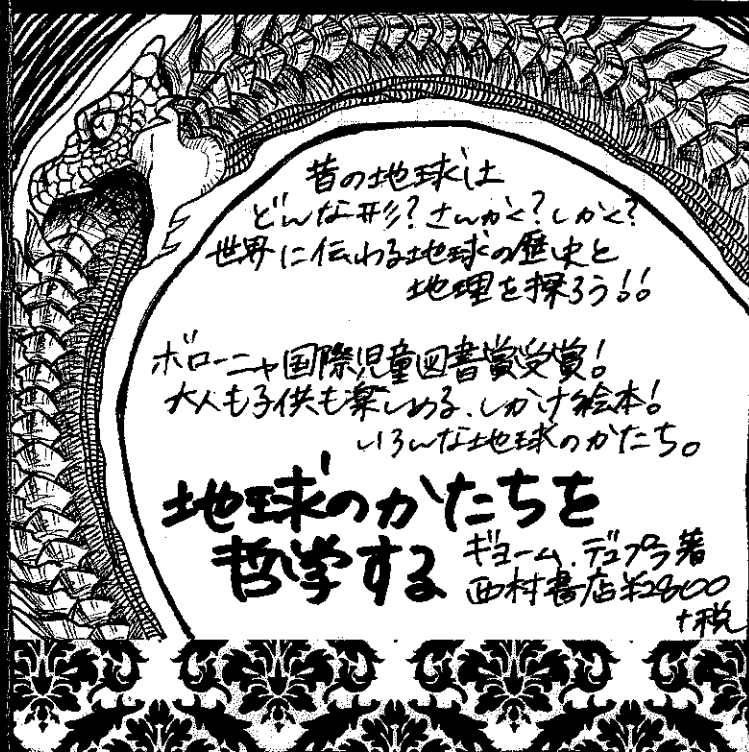 昔の地球は
どんな形?さんかく?しかく?
世界に伝わる地球の歴史と
地理を探ろう!!
ボローニャ国際児童図書賞受賞!
大人も子供も楽しめる、しかけ絵本!
いろんな地球のかたち。
地球のかたちを
哲学する
ギヨーム・デュプラ著
西村書店¥2800
+税